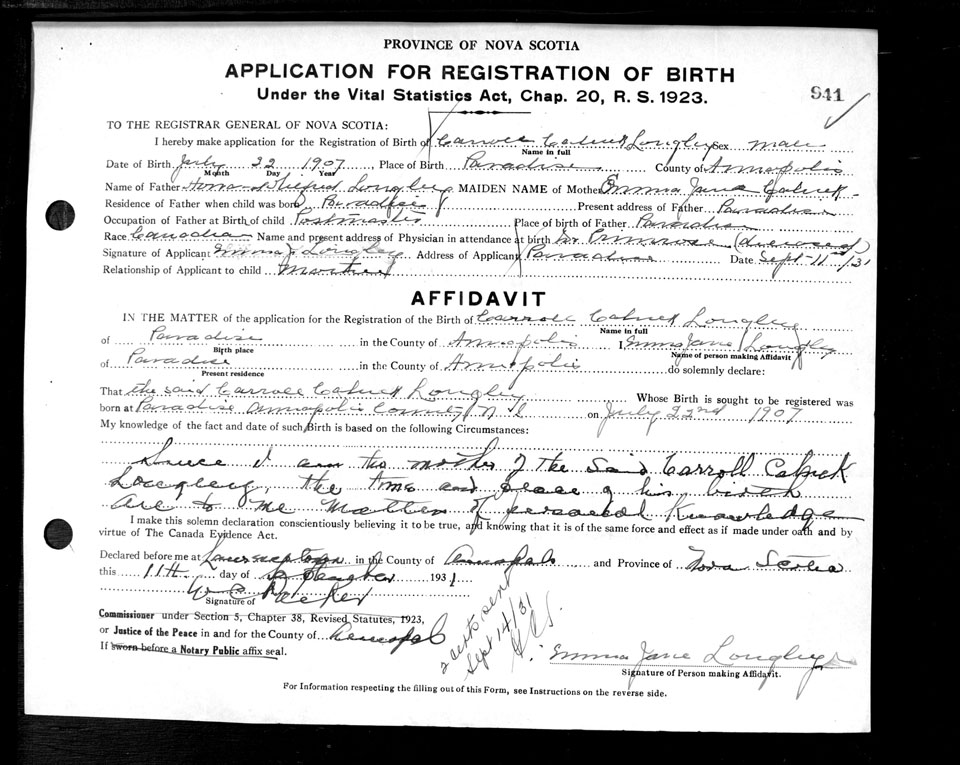 PROVINCE OF NOVA SCOTIA
APPLICATION FOR REGISTRATION OF BIRTH
Under the Vital Statistics Act, Chap. 20, R. S. 1923.
941
TO THE REGISTRAR GENERAL OF NOVA SCOTIA:
I hereby make application for the Registration of Birth of Carroll Longley Sex Male
Name in full
Date of Birth July 22 1907 Place of Birth Paradise County of Annapolis
Month Day Year
Name of Father Longley MAIDEN NAME of Mother Emma Jane
Residence of Father when child was born Paradise Present address of Father Paradise
Occupation of Father at Birth of child Postmaster Place of birth of Father Paradise
Race Canadian Name and present address of Physician in attendance at birth Dr Primrose (deceased)
Signature of Applicant Emma J Longley Address of Applicant Paradise Date Sept 11/31
Relationship of Applicant to child Mother
AFFIDAVIT
IN THE MATTER of the application for the Registration of the Birth of Carroll Longley
Name in full
of Paradise in the County of Annapolis I Emma Jane Longley
Birth place Name of person making Affidavit
of Paradise in the County of Annapolis do solemnly declare:
Present residence
That the said Carroll Longley Whose Birth is sought to be registered was
born at Paradise Annapolis County N.S. on July 22nd 1907
My knowledge of the fact and date of such Birth is based on the following Circumstances:
Since I am the mother of the said Carroll
Longley, the time and place of his birth
are to me matters of personal knowledge
I make this solemn declaration conscientiously believing it to be true, and knowing that it is of the same force and effect as if made under oath and by
virtue of The Canada Evidence Act.
Declared before me at Lawrencetown in the County of Annapolis and Province of Nova Scotia
this 11th day of September 1931
Signature of
Commissioner under Section 5, Chapter 38, Revised Statutes, 1923,
or Justice of the Peace in and for the County of Annapolis
If sworn before a Notary Public affix seal.
2 certs sent
Sept 14/31
Emma Jane Longley
Signature of Person making Affidavit.
For Information respecting the filling out of this Form, see Instructions on the reverse side.